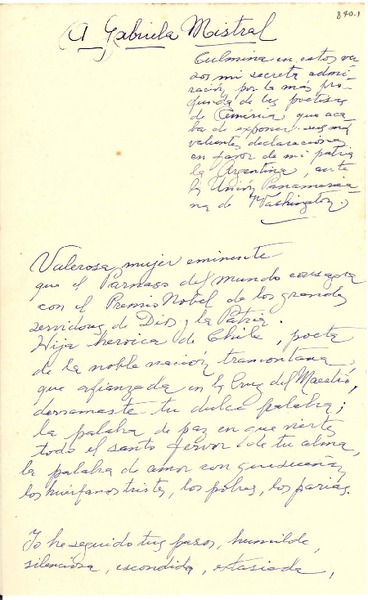 A Gabriela Mistral
840.1
Culmina en estos ver
sos mi secreta admi
ración, por la más pro
funda de las poetisas
de América que aca
ba de exponer sus más
valientes declaraciones
en favor de mi patria
la Argentina, ante
la Unión Panamerica
na de Washington.
Valerosa, mujer eminente
que el Parnaso del mundo consagra
con el Premio Nobel de los grandes
servidores de Dios y la Patria.
Hija heroica de Chile, poeta
de la noble nación tramontana
que afianzada en la Cruz del Maestro,
derramaste tu dulce palabra;
la palabra de paz en que viertes
todo el santo fervor de tu alma,
la palabra de amor con que
los huérfanos tristes, los pobres, los parias.
Yo he seguido tus pasos, humilde,
silenciosa, escondida, extasiada,